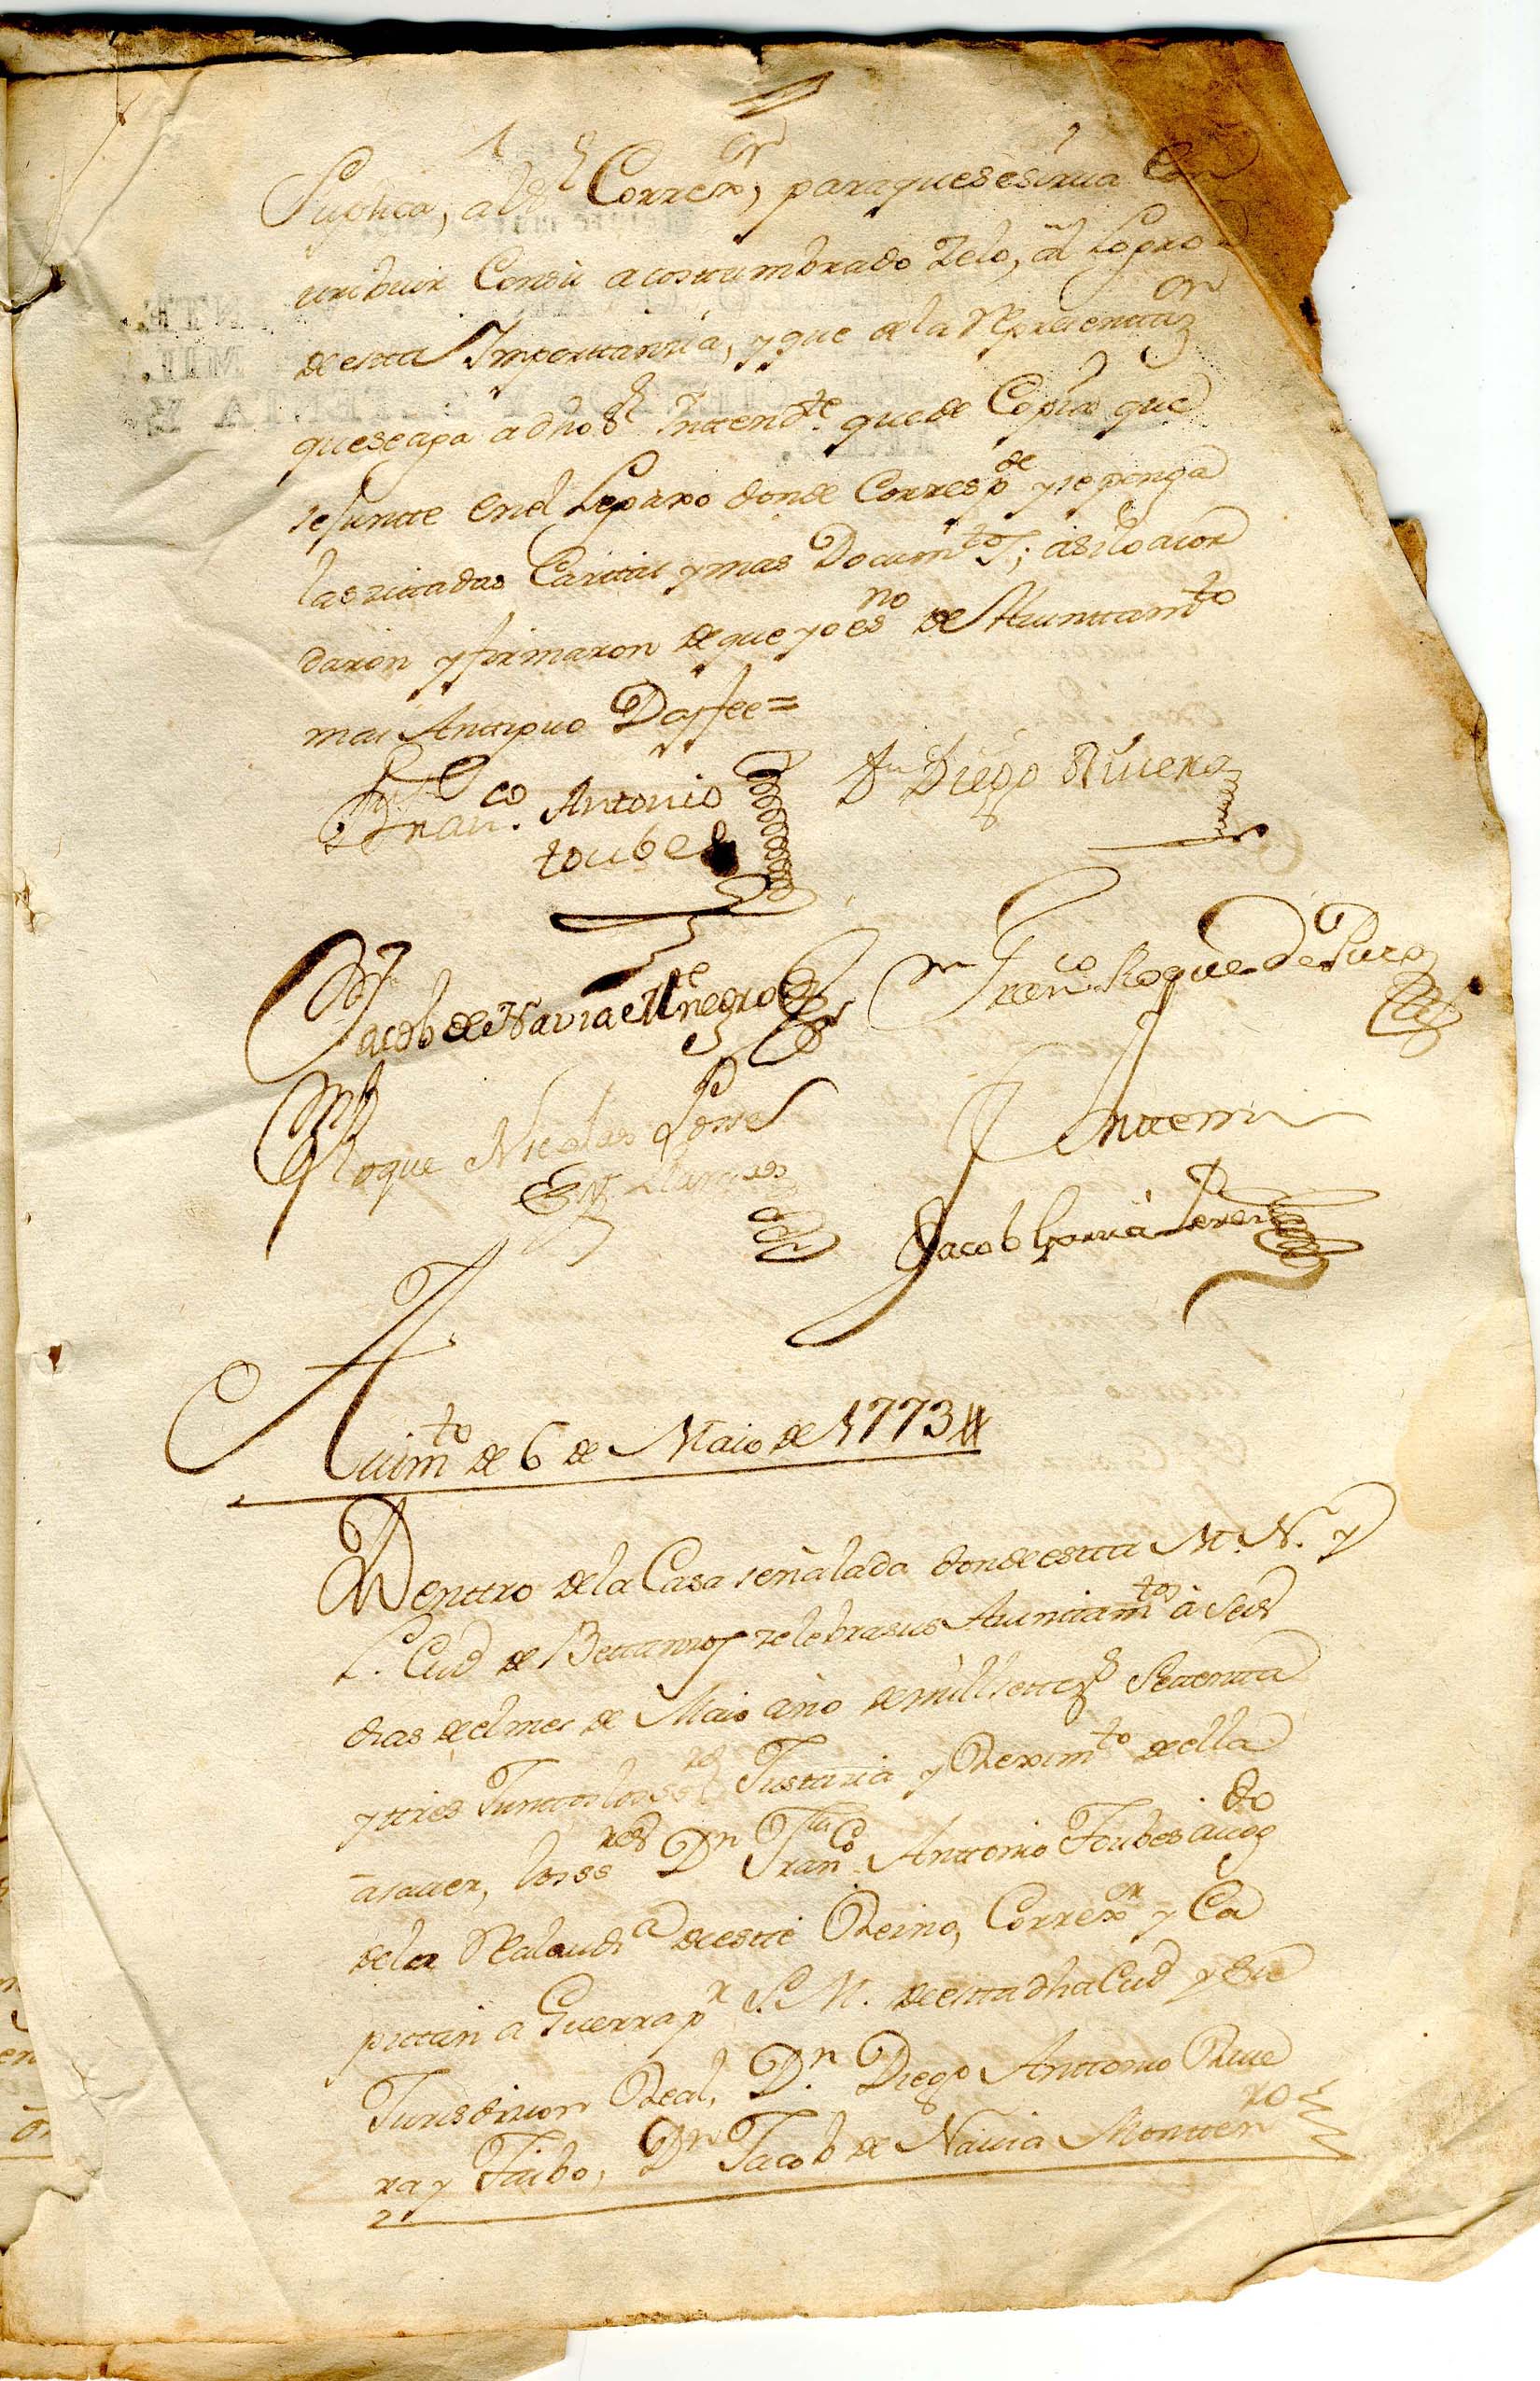 Suplica, al Sr. Correxor, paraquesesirua Con
tribuir Consu acostumbrado Zelo, al logro
de estta Ymporttanzia, y que dela Representtazon
queseaga adho Sr. Yntendte. quede Copia que
se juntte enel Legaxo donde Correspde y se ponga
las zittadas Carttas y mas Documtos; asilo acor
daron y firmaron de que yo esno de Aiunttamto
mas Anttiguo Doyfee=
Franco. Antonio
toubes
Dn Diego Riuera
Jacob de Navia e Mtenegro
Dn Franco Roque de Puzo
Roque Nicolas
Antte mi
Jacob Garcia Perez
Auimto de 6 de Maio de 1773
Denttro dela Casa señalada dondeestta M. N. y
L. Ciud de Bettanzos zelebrasus Aiunttamtos à Seis
dias del mes de Maio año de mill settezs Settentta
y ttres Junttos los sres Justtizia y Reximto della
asauer, los ssres Dn Franco Anttonio Toubes auogdo
dela Rl audia deestte Reino, Correxor y Ca
pittan a Guerra pr S. M. deestta dha Ciud y su
Jurisdizion Real, Dn. Diego Anttonio Riue
ra y Taibo, Dn Jacob de Nauia Monttenro